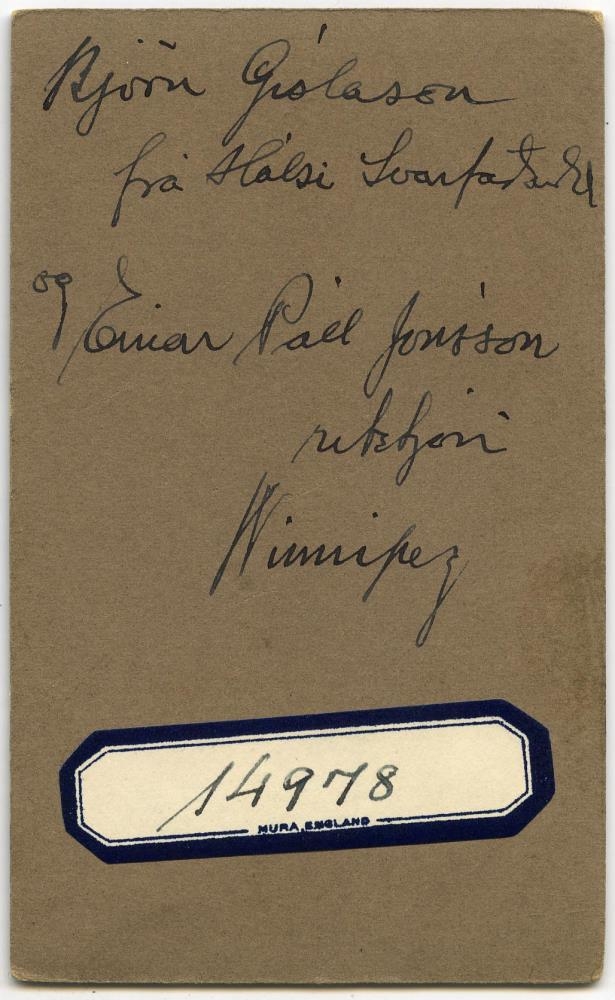 Björn Gíslason
frá Hálsi Svarfaðardal
og Einar Páll Jónsson
ritstjóri
Winnipeg
14978
MURA, ENGLAND